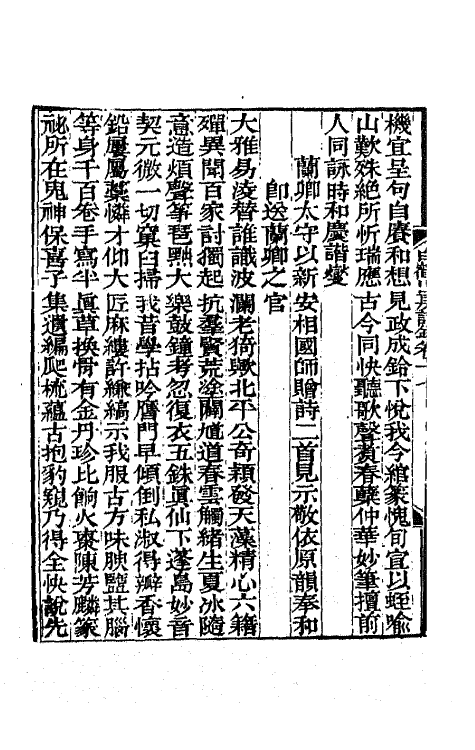 機宜呈句自賡和想見政成鈴下悅我今綰篆愧旬宜以蛭喻
山歎殊絶所忻瑞應古今同快聽歌聲賚春蘗仲華妙筆擅前
人同詠時和慶諧燮
蘭卿太守以新安相國師贈詩二首見示敬依原韻奉和
卽送蘭卿之官
大雅易淩替誰識波瀾老猗歟北平公奇穎發天藻精心六籍
殫異聞百家討獨起抗羣賢荒塗闢馗道春雲觸緒生夏冰隨
意造煩聲箏琵黜大樂鼓鐘考忽復衣五銖眞仙下蓬島妙音
契元微一切窠臼掃我昔學拈吟膺門早傾倒私淑得瓣香懷
鉛屢屬藁憐才仰大匠麻縷許縑縞示我服古方味腴鹽其腦
等身千百卷手寫半眞草換骨有金丹珍比餉火棗陳芳麟篆
祕所在鬼神保喜子集遺編爬梳蘊古抱豹窺乃得全快說先